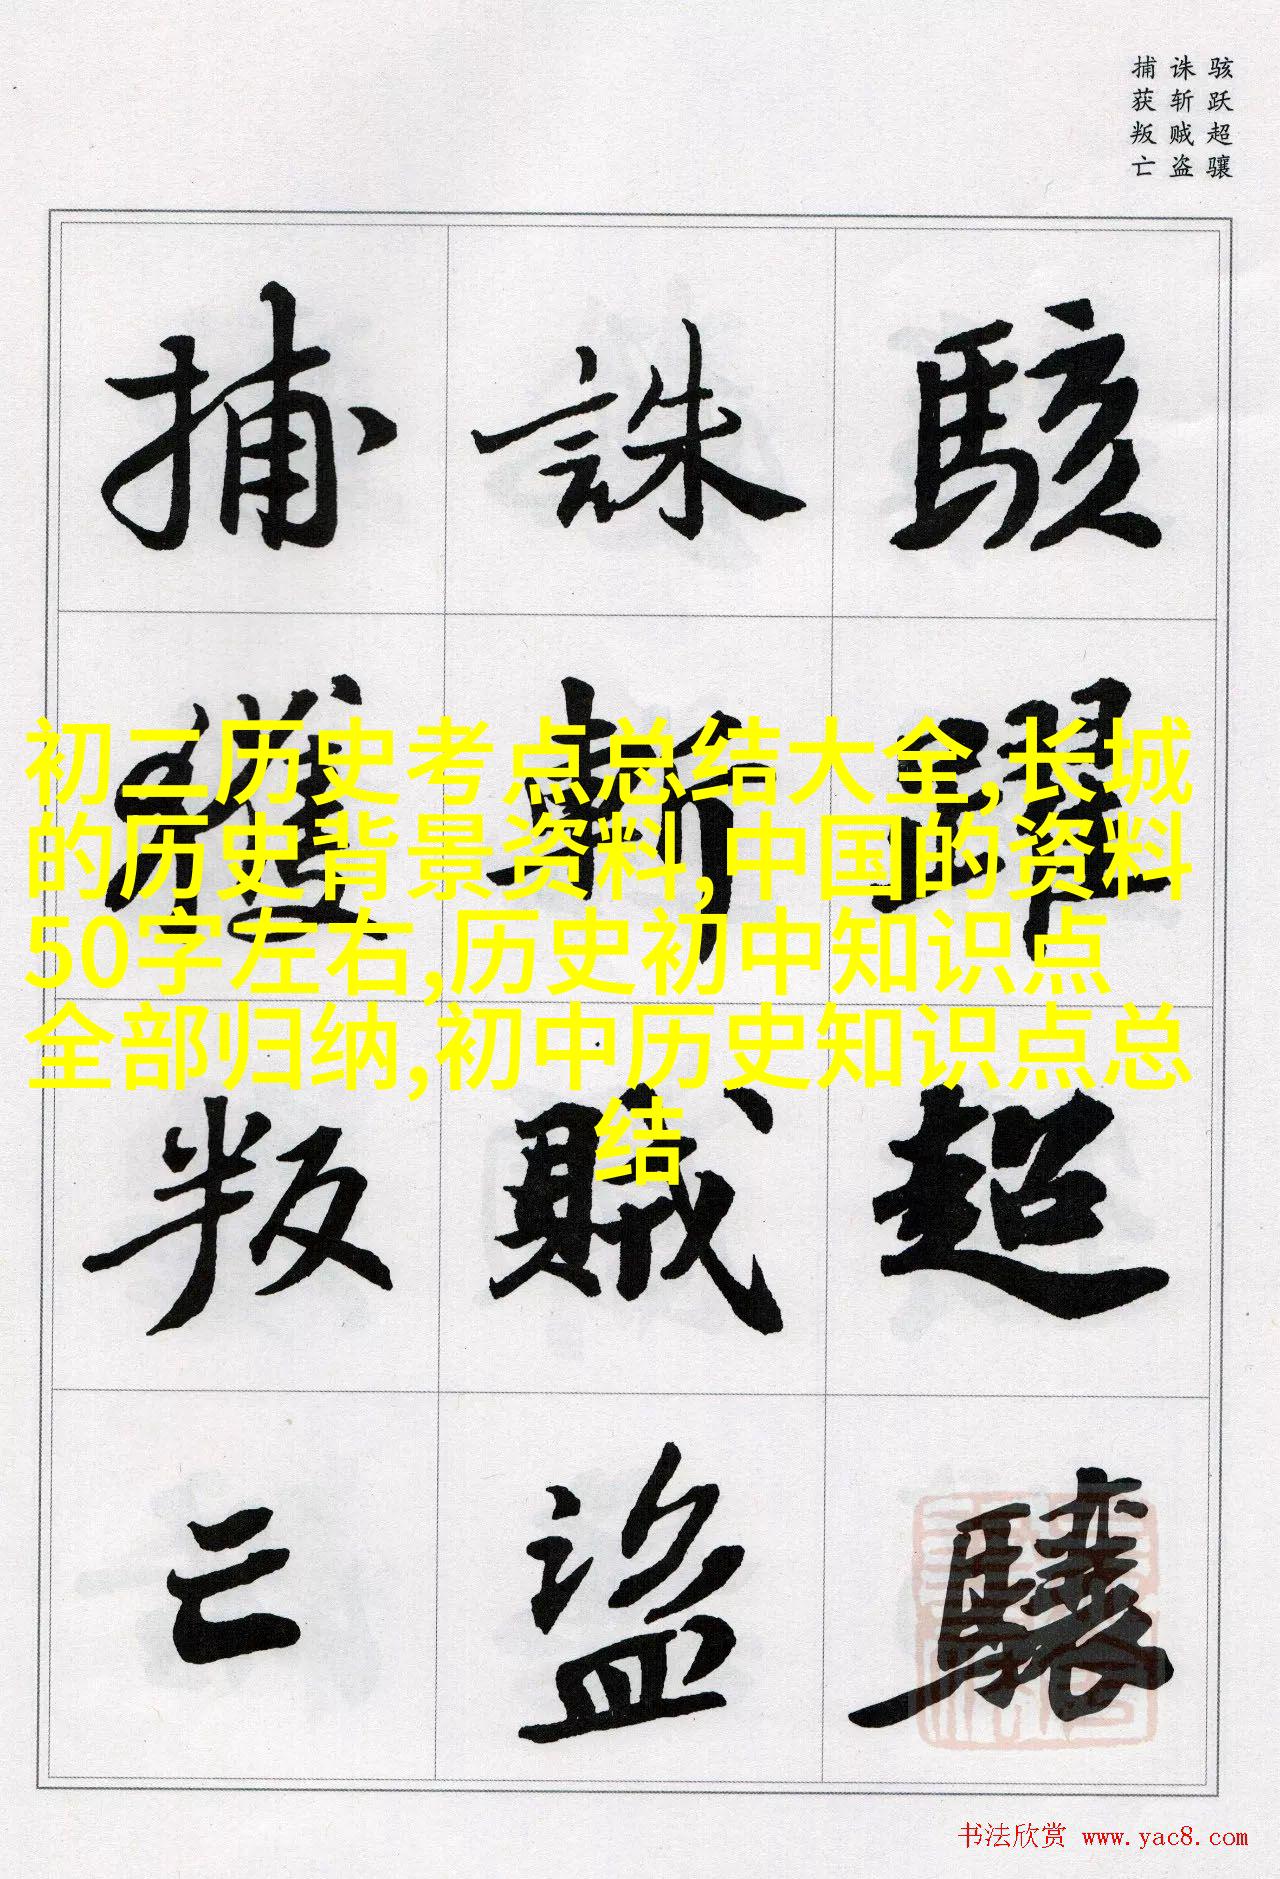 骇跃超骧
诛斩贼盗
捕获叛亡
駭躍超驤
誅斬賊盜
捕獲叛亡
初二历史考点总结大全,长城
的历史背景资料,中国的资料
50字左右,历史初中知识点
全部归纳,初中历史知识点总
结
书法欣赏 www.yac8.com